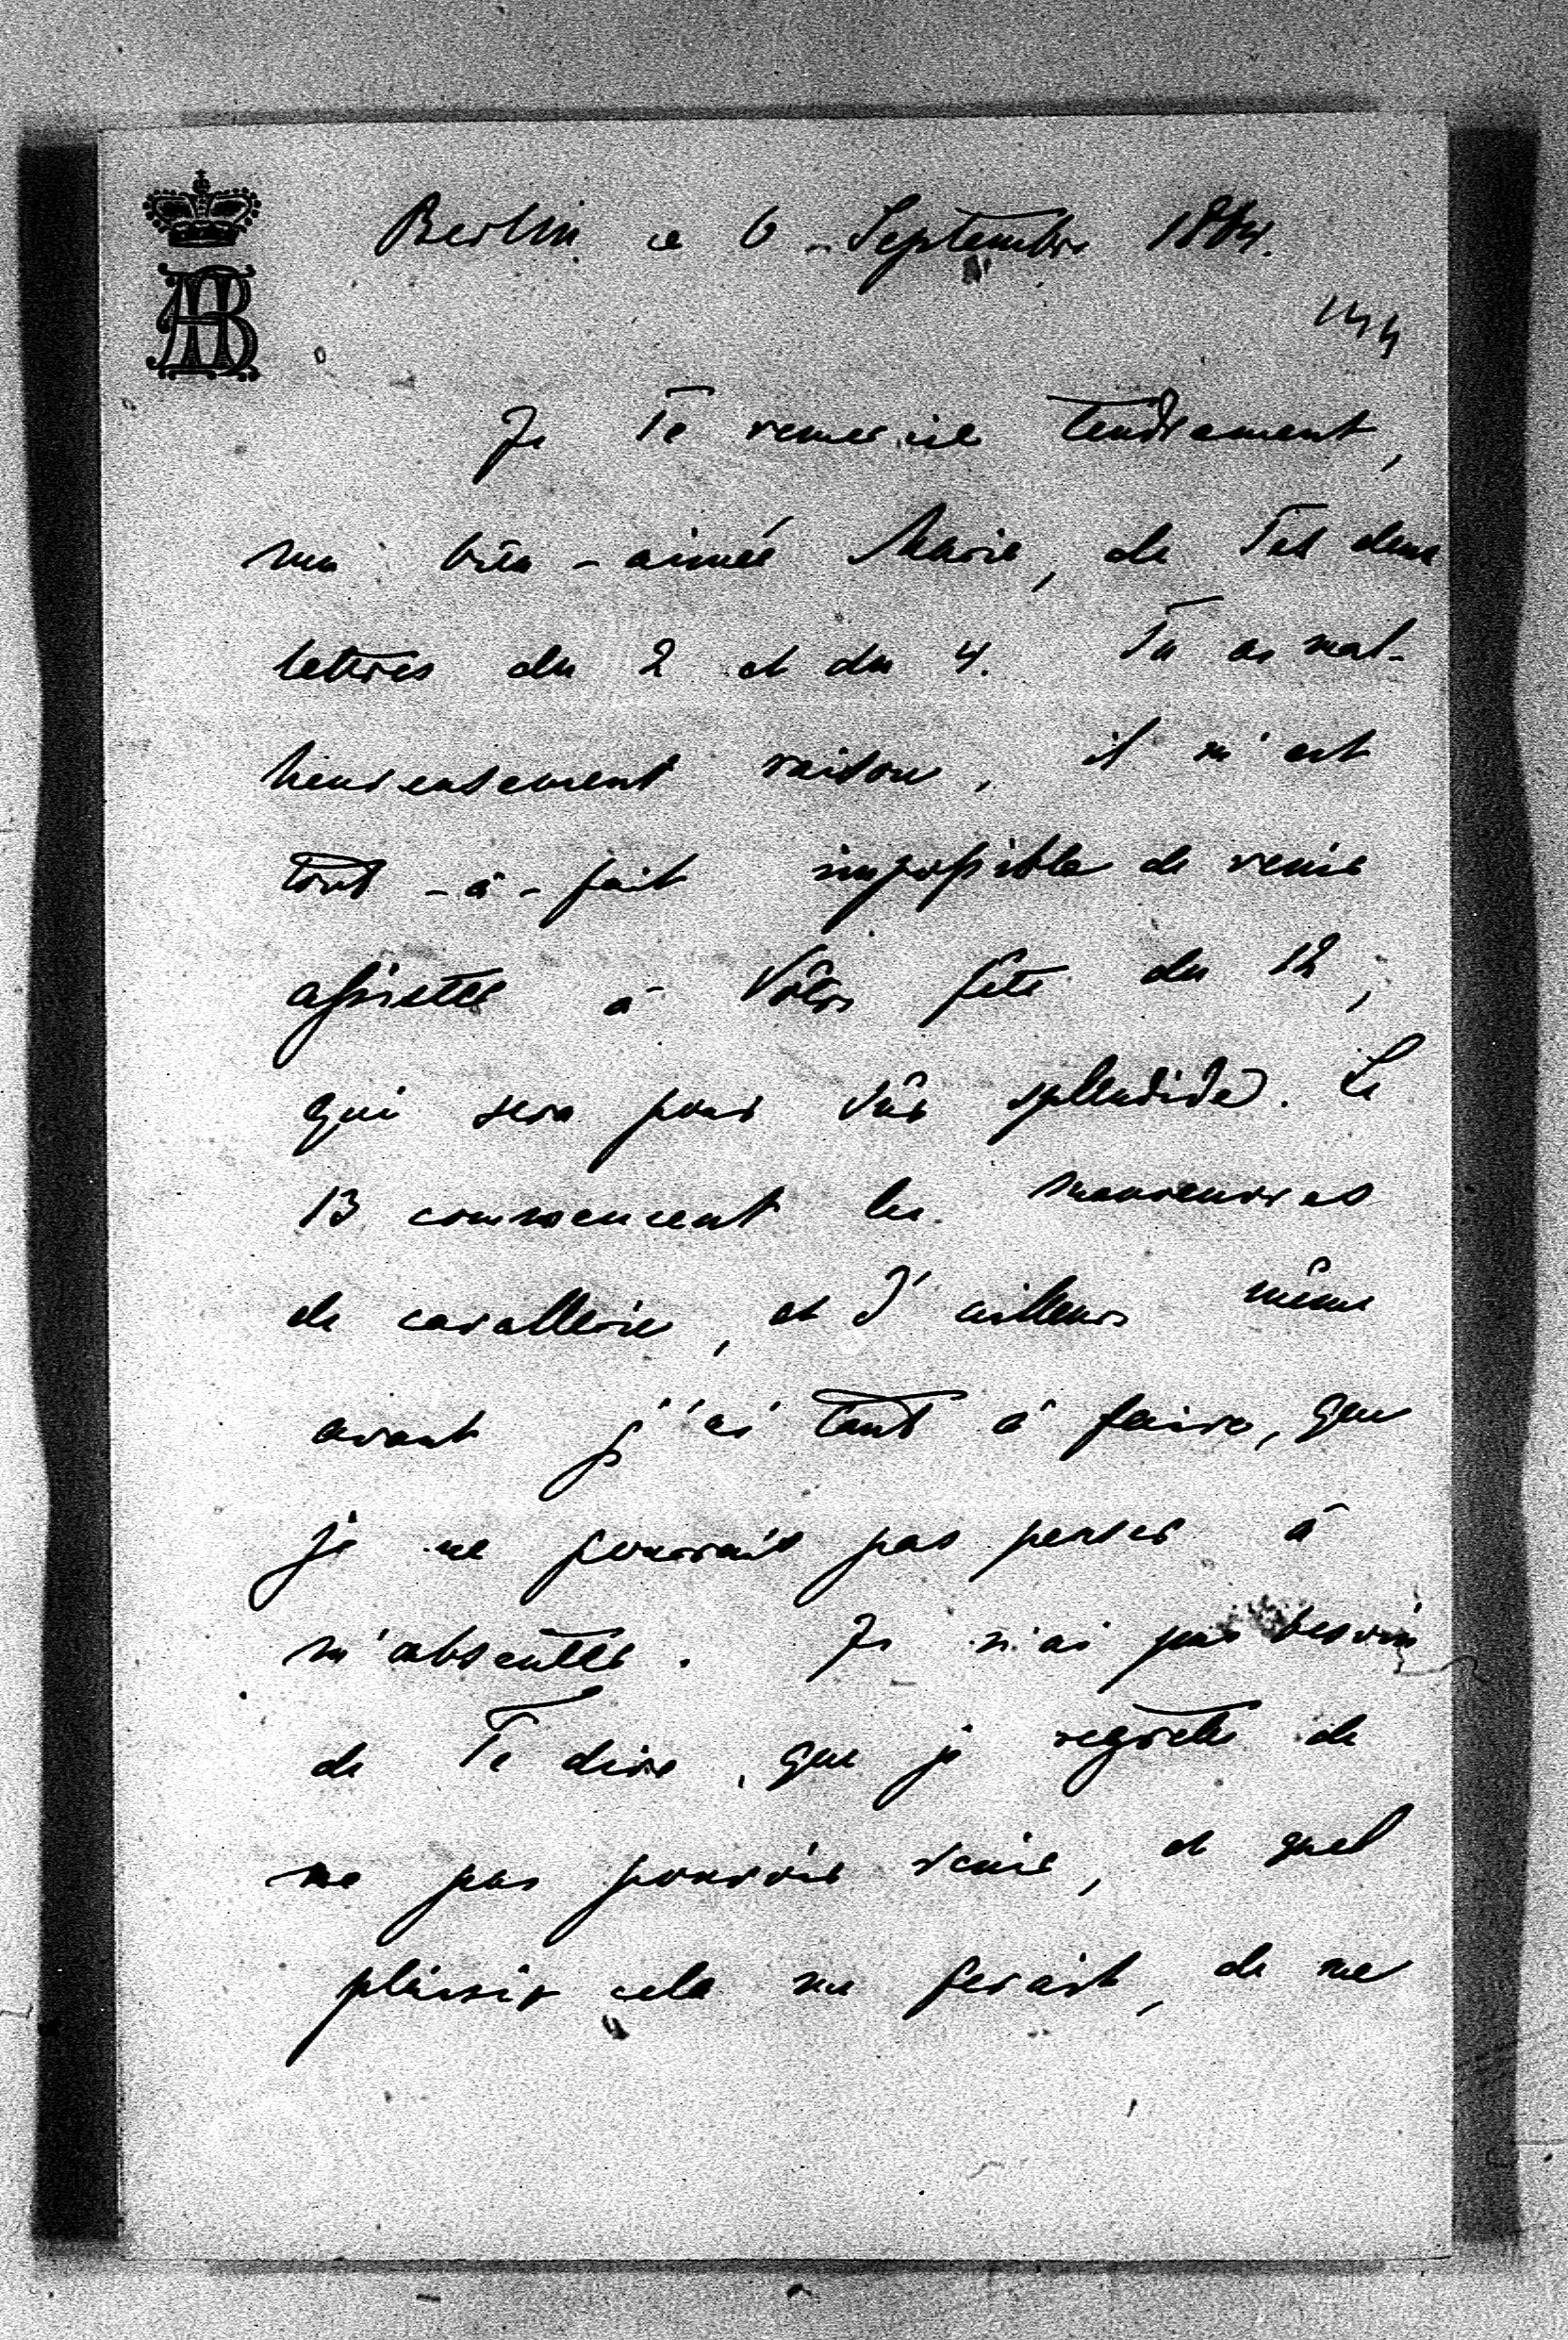 AB
Berlin ce 6 Septembre 1884.
144
Je Te remercie tendrement,
ma bien-aimée Marie, de Tes deux
lettres du 2 et du 4. Tu as mal-
heureusement raison, il m'est
tout-à-fait impossible de venir
assister à Votre fête du 12,
qui sera pour sûr splendide. Le
13 commencent les manoeuvres
de cavallerie, et d'ailleurs même
avant j'ai tant à faire, que
je ne pourrais pas penser à
m'absenter. Je n'ai pas besoin
de Te dire, que je regrette de
ne pas pouvoir venir, et quel
plaisir cela me ferait, de me